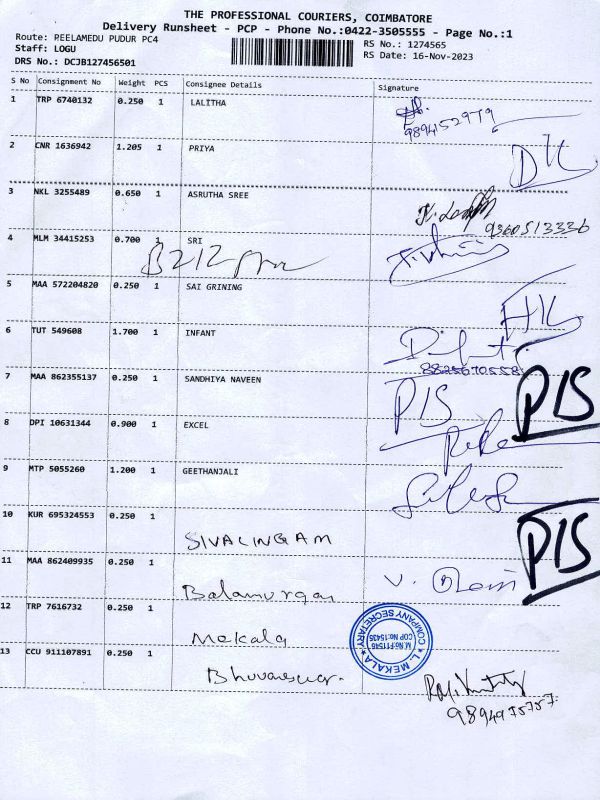 THE PROFESSIONAL COURIERS, COIMBATORE
Delivery Runsheet - PCP - Phone No.:0422-3505555 - Page No.:1
Route: PEELAMEDU PUDUR PC4
RS No.: 1274565
Staff: LOGU
RS Date: 16-Nov-2023
DRS No.: DCJB127456501
S No Consignment No Weight PCS Consignee Details Signature
1 TRP 6740132 0.250 1 LALITHA
9894152979
2 CNR 1636942 1.205 1 PRIYA
3 NKL 3255489 0.650 1 ASRUTHA SREE
9360513336
4 MLM 34415253 0.700 1 SRI
5 MAA 572204820 0.250 1 SAI GRINING
6 TUT 549608 1.700 1 INFANT
8825670558
7 MAA 862355137 0.250 1 SANDHIYA NAVEEN
P/S P/S
8 DPI 10631344 0.900 1 EXCEL
9 MTP 5055260 1.200 1 GEETHANJALI
10 KUR 695324553 0.250 1 SIVALINGAM
P/S
11 MAA 862409935 0.250 1 Balamurgan
12 TRP 7616732 0.250 1 Mekala
L. MEKALA COMPANY SECRETARY
M.No:F11546
COP No:15435
13 CCU 911107891 0.250 1
9894975757